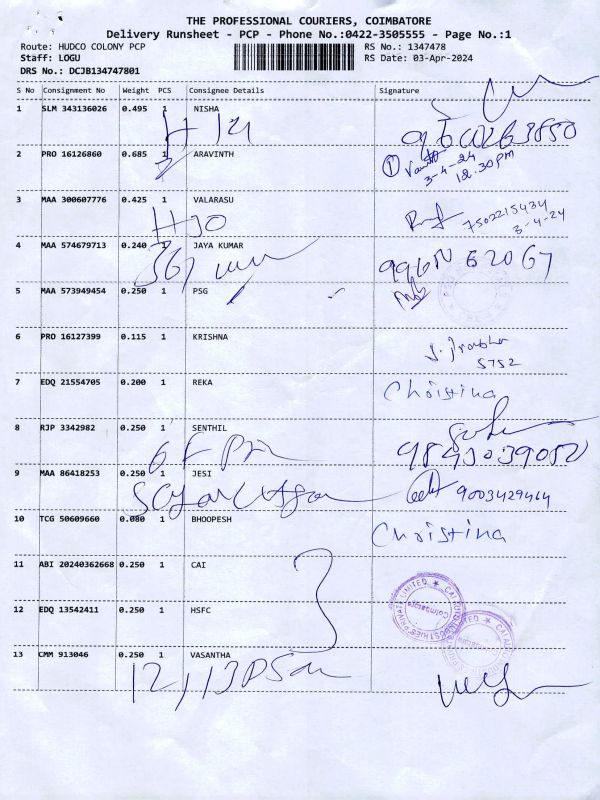 THE PROFESSIONAL COURIERS, COIMBATORE
Delivery Runsheet - PCP - Phone No.:0422-3505555 - Page No.:1
Route: HUDCO COLONY PCP RS No.: 1347478
Staff: LOGU RS Date: 03-Apr-2024
DRS No.: DCJB134747801
S No Consignment No Weight PCS Consignee Details Signature
1 SLM 343136026 0.495 1 NISHA
2 PRO 16126860 0.685 1 ARAVINTH
3-4-24
12.30pm
3 MAA 300607776 0.425 1 VALARASU
7502215434
3-4-24
4 MAA 574679713 0.240 1 JAYA KUMAR
5 MAA 573949454 0.250 1 PSG
6 PRO 16127399 0.115 1 KRISHNA
5752
7 EDQ 21554705 0.200 1 REKA Christina
8 RJP 3342982 0.250 1 SENTHIL
9 MAA 86418253 0.250 1 JESI
9003429464
10 TCG 50609660 0.080 1 BHOOPESH Christina
11 ABI 20240362668 0.250 1 CAI
12 EDQ 13542411 0.250 1 HSFC
Coimbatore
13 CMM 913046 0.250 1 VASANTHA